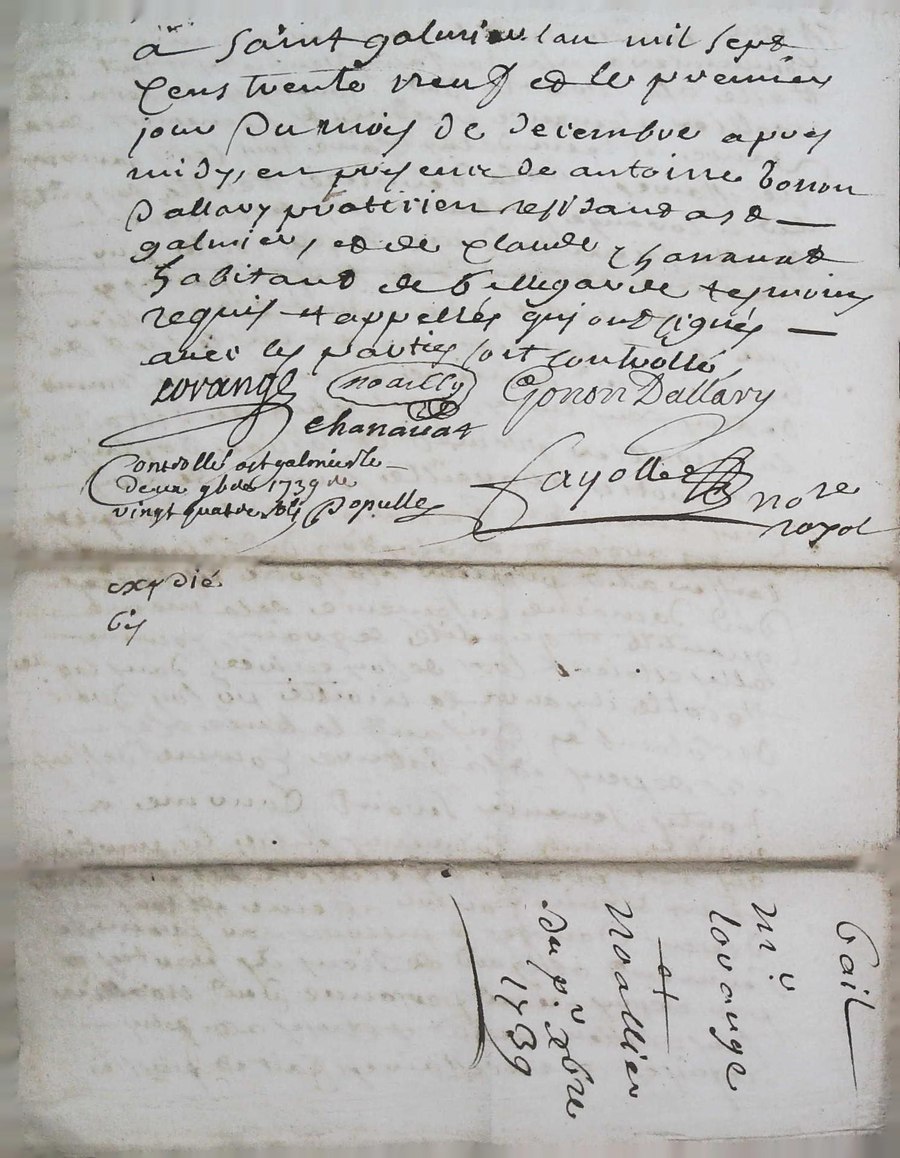 a Saint galmier lan mil sept
Cens trente neuf et le premier
jour Du mois de decembre apres
midy, en presence de antoine Gonon
Dallary praticien ressidand a st
galmier, et de Claude Chanauat
habitand de bellegarde tesmoins
requis et appellés qui ont signés
avec les parties soit controllé
Lorange noailly Gonon Dallary
Chanauat
Controllé a st galmier le
deux xbre 1739 re
vingt quatre sols Populle
fayolle nore
royal
expedié
bis
bail
mr
lorange
et
Noallier
du pr. xbre
1739